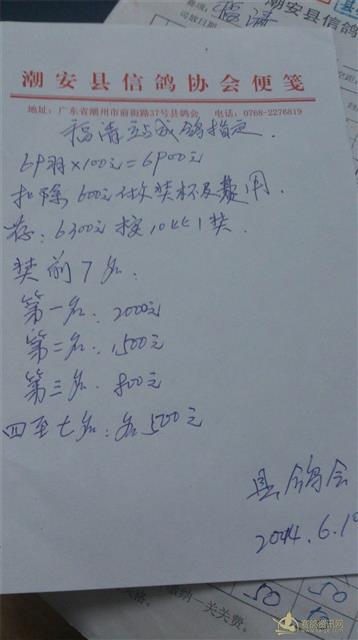 福清
潮安县信鸽
潮安县信鸽协会便笺
地址：广东省潮州市前街路37号县鸽会 电话：0768-2276819
福清站成鸽指定.
69羽×100元=6900元
扣除600元做奖杯及费用.
存：6300元 按10比1奖.
奖前7名.
第一名：2000元
第二名：1500元
第三名：800元
四至七名：各500元
县鸽会
2014.6.1
50 50
缴纳一关关费.